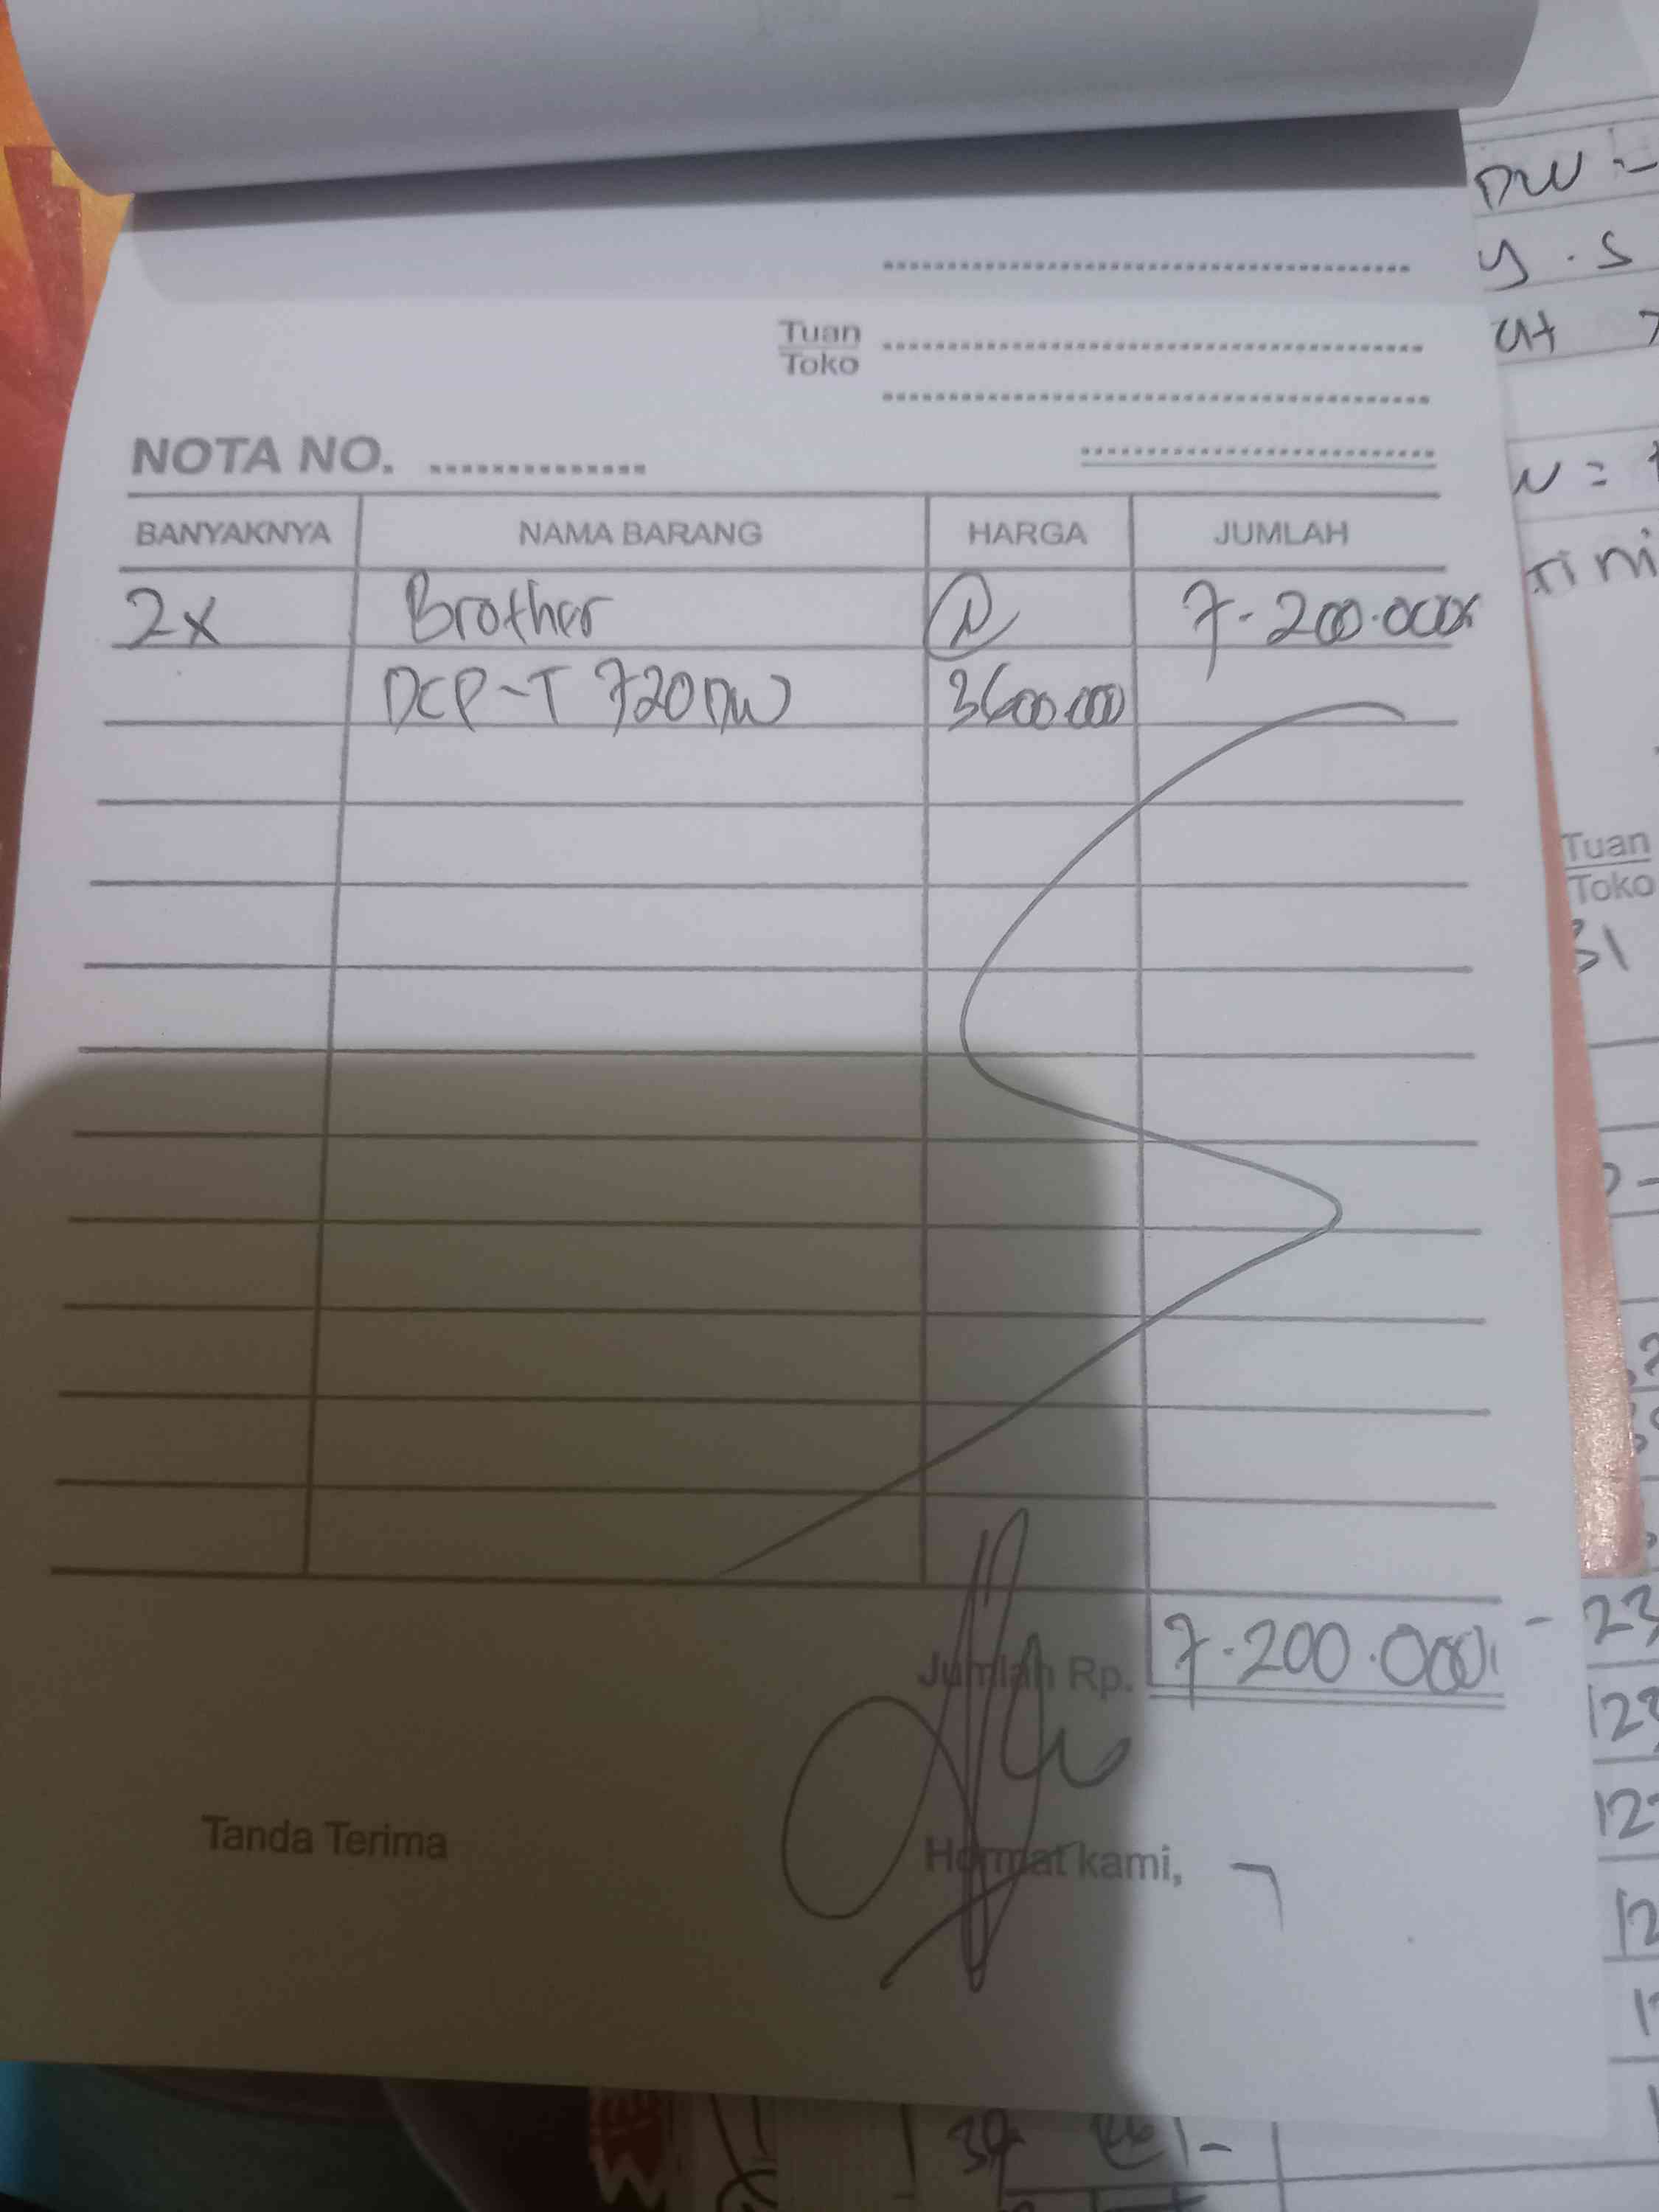 Tuan
Toko
NOTA NO.
BANYAKNYA NAMA BARANG HARGA JUMLAH
2x Brother @ 7.200.000
DCP-T 720DW 3600.000
Jumlah Rp. 7.200.000
Tanda Terima Hormat kami,
DW
y . s
N =
Tuan
Toko
31
23
12